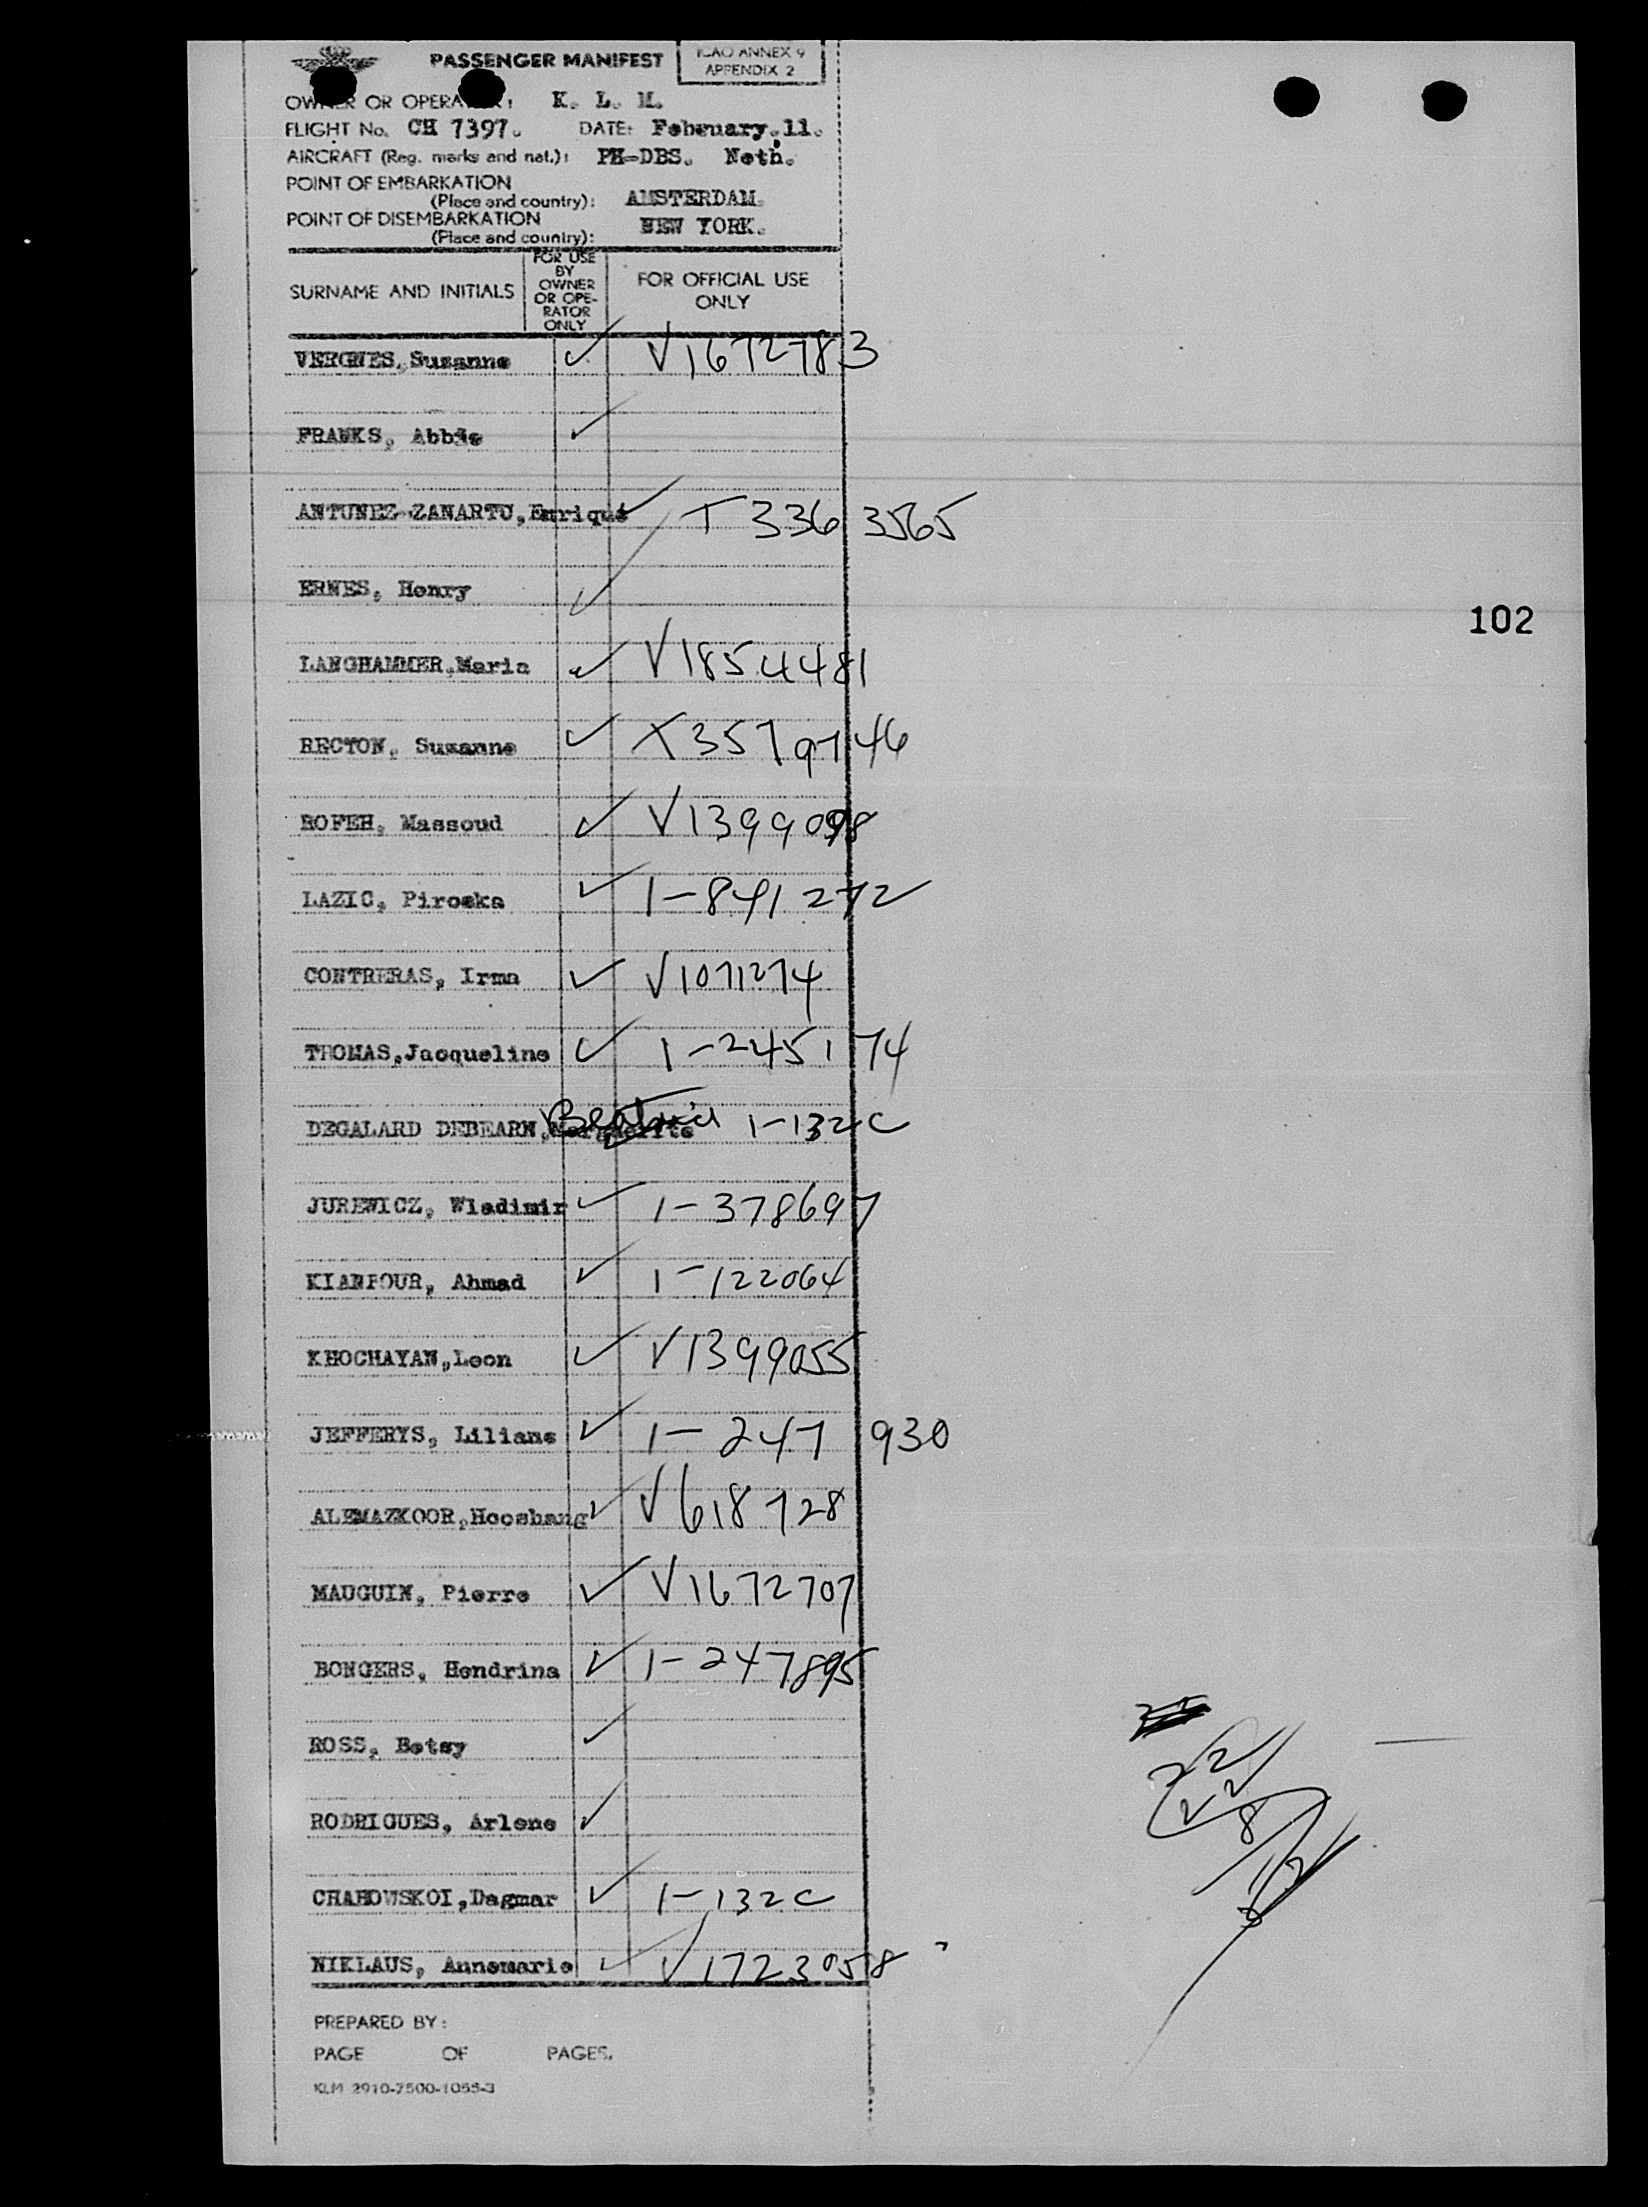 PASSENGER MANIFEST
ICAO ANNEX 9
APPENDIX 2
OWNER OR OPERATOR: K. L. M.
FLIGHT No. CH 7397. DATE: February.11.
AIRCRAFT (Reg. marks and nat.): PH-DBS. Neth.
POINT OF EMBARKATION
(Place and country): AMSTERDAM.
POINT OF DISEMBARKATION
(Place and country): NEW YORK.
SURNAME AND INITIALS
FOR USE
BY
OWNER
OR OPE-
RATOR
ONLY
FOR OFFICIAL USE
ONLY
VERGNES, Suzanne ✓ V1672783
FRANKS, Abbie ✓
ANTUNEZ-ZANARTU, Enrique ✓ T 336 3565
ERNES, Henry ✓
LANGHAMMER, Maria ✓ V1854481
RECTON, Suzanne ✓ T3579746
ROFEH, Massoud ✓ V1399098
LAZIC, Piroska ✓ 1-841272
CONTRERAS, Irma ✓ V1071274
THOMAS, Jacqueline ✓ 1-245174
DEGALARD DEBEARN, 1-132C
JUREWICZ, Wladimir ✓ 1-378697
KIANPOUR, Ahmad ✓ 1-122064
KHOCHAYAN, Leon ✓ V1399055
JEFFERYS, Liliane ✓ 1-247 930
ALEMAZKOOR, Hooshang ✓ V618728
MAUGUIN, Pierre ✓ V1672707
BONGERS, Hendrina ✓ 1-247895
ROSS, Betsy ✓
RODRIGUES, Arlene ✓
CHAHOWSKOI, Dagmar ✓ 1-132C
NIKLAUS, Annemarie ✓ V1723058
102
PREPARED BY:
PAGE OF PAGES.
KLM 2910-7500-1055-3